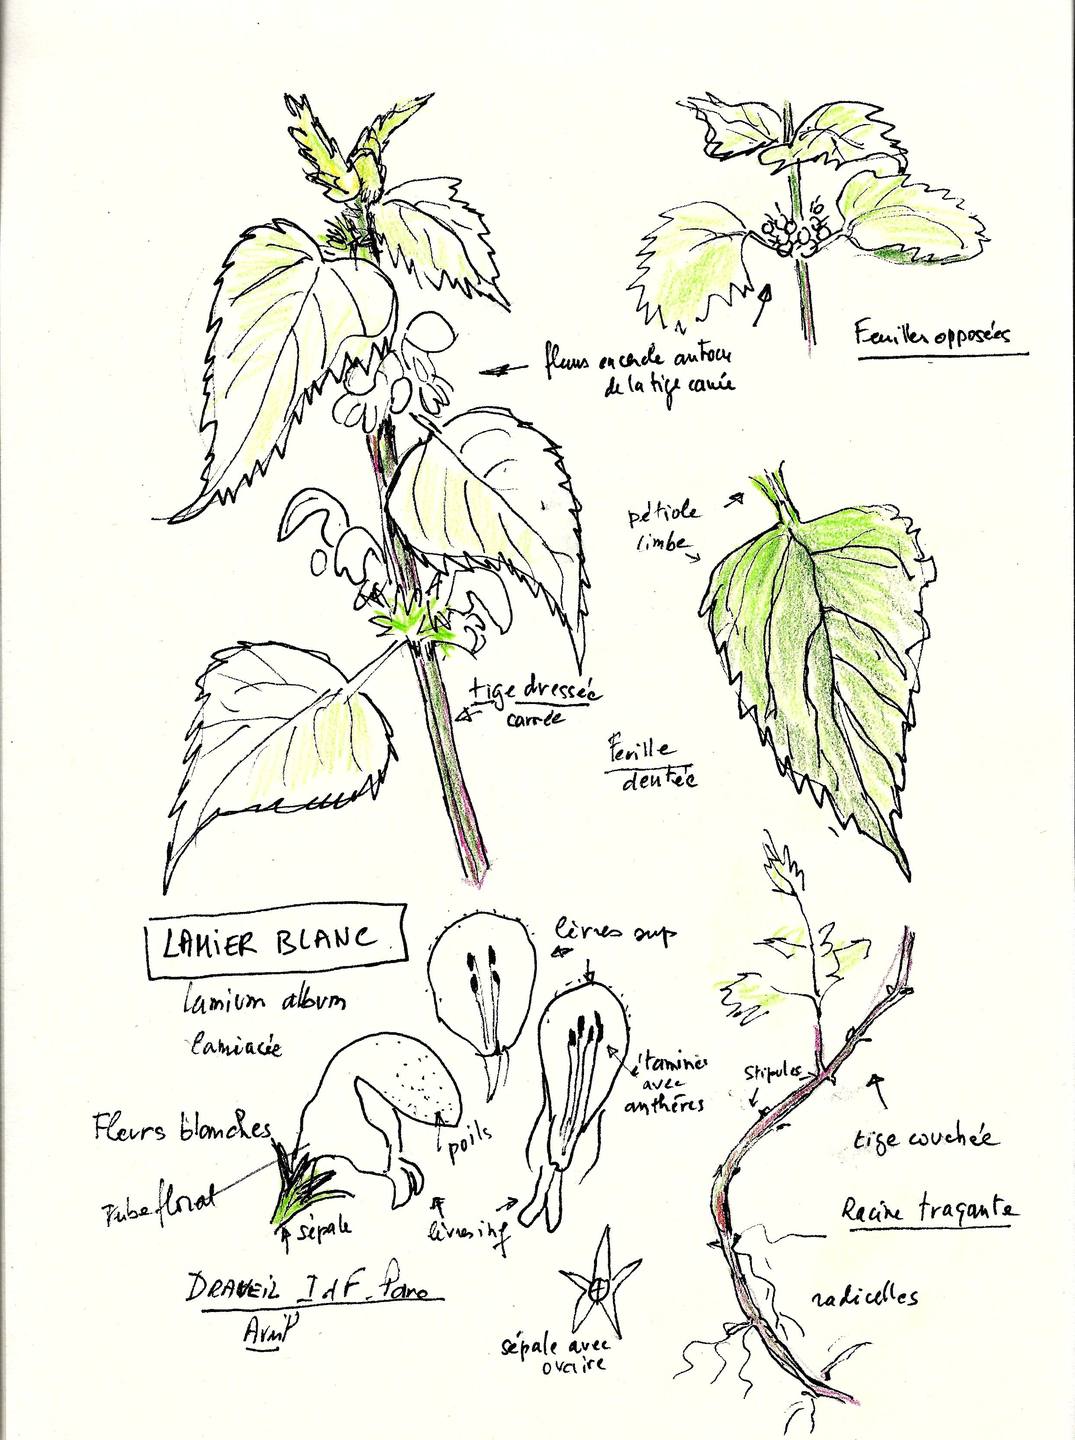 Feuilles opposées
fleurs en cercle autour
de la tige carrée
pétiole
limbe
tige dressée
carrée
Feuille
dentée
LAMIER BLANC
lamium album
lamiacée
lèvres sup
étamines
avec
anthères
Stipules
Fleurs blanches
poils
tige couchée
Tube floral
sépale
lèvres inf
Racine traçante
DRAVEIL IdF. Parc
Avril
radicelles
sépale avec
ovaire